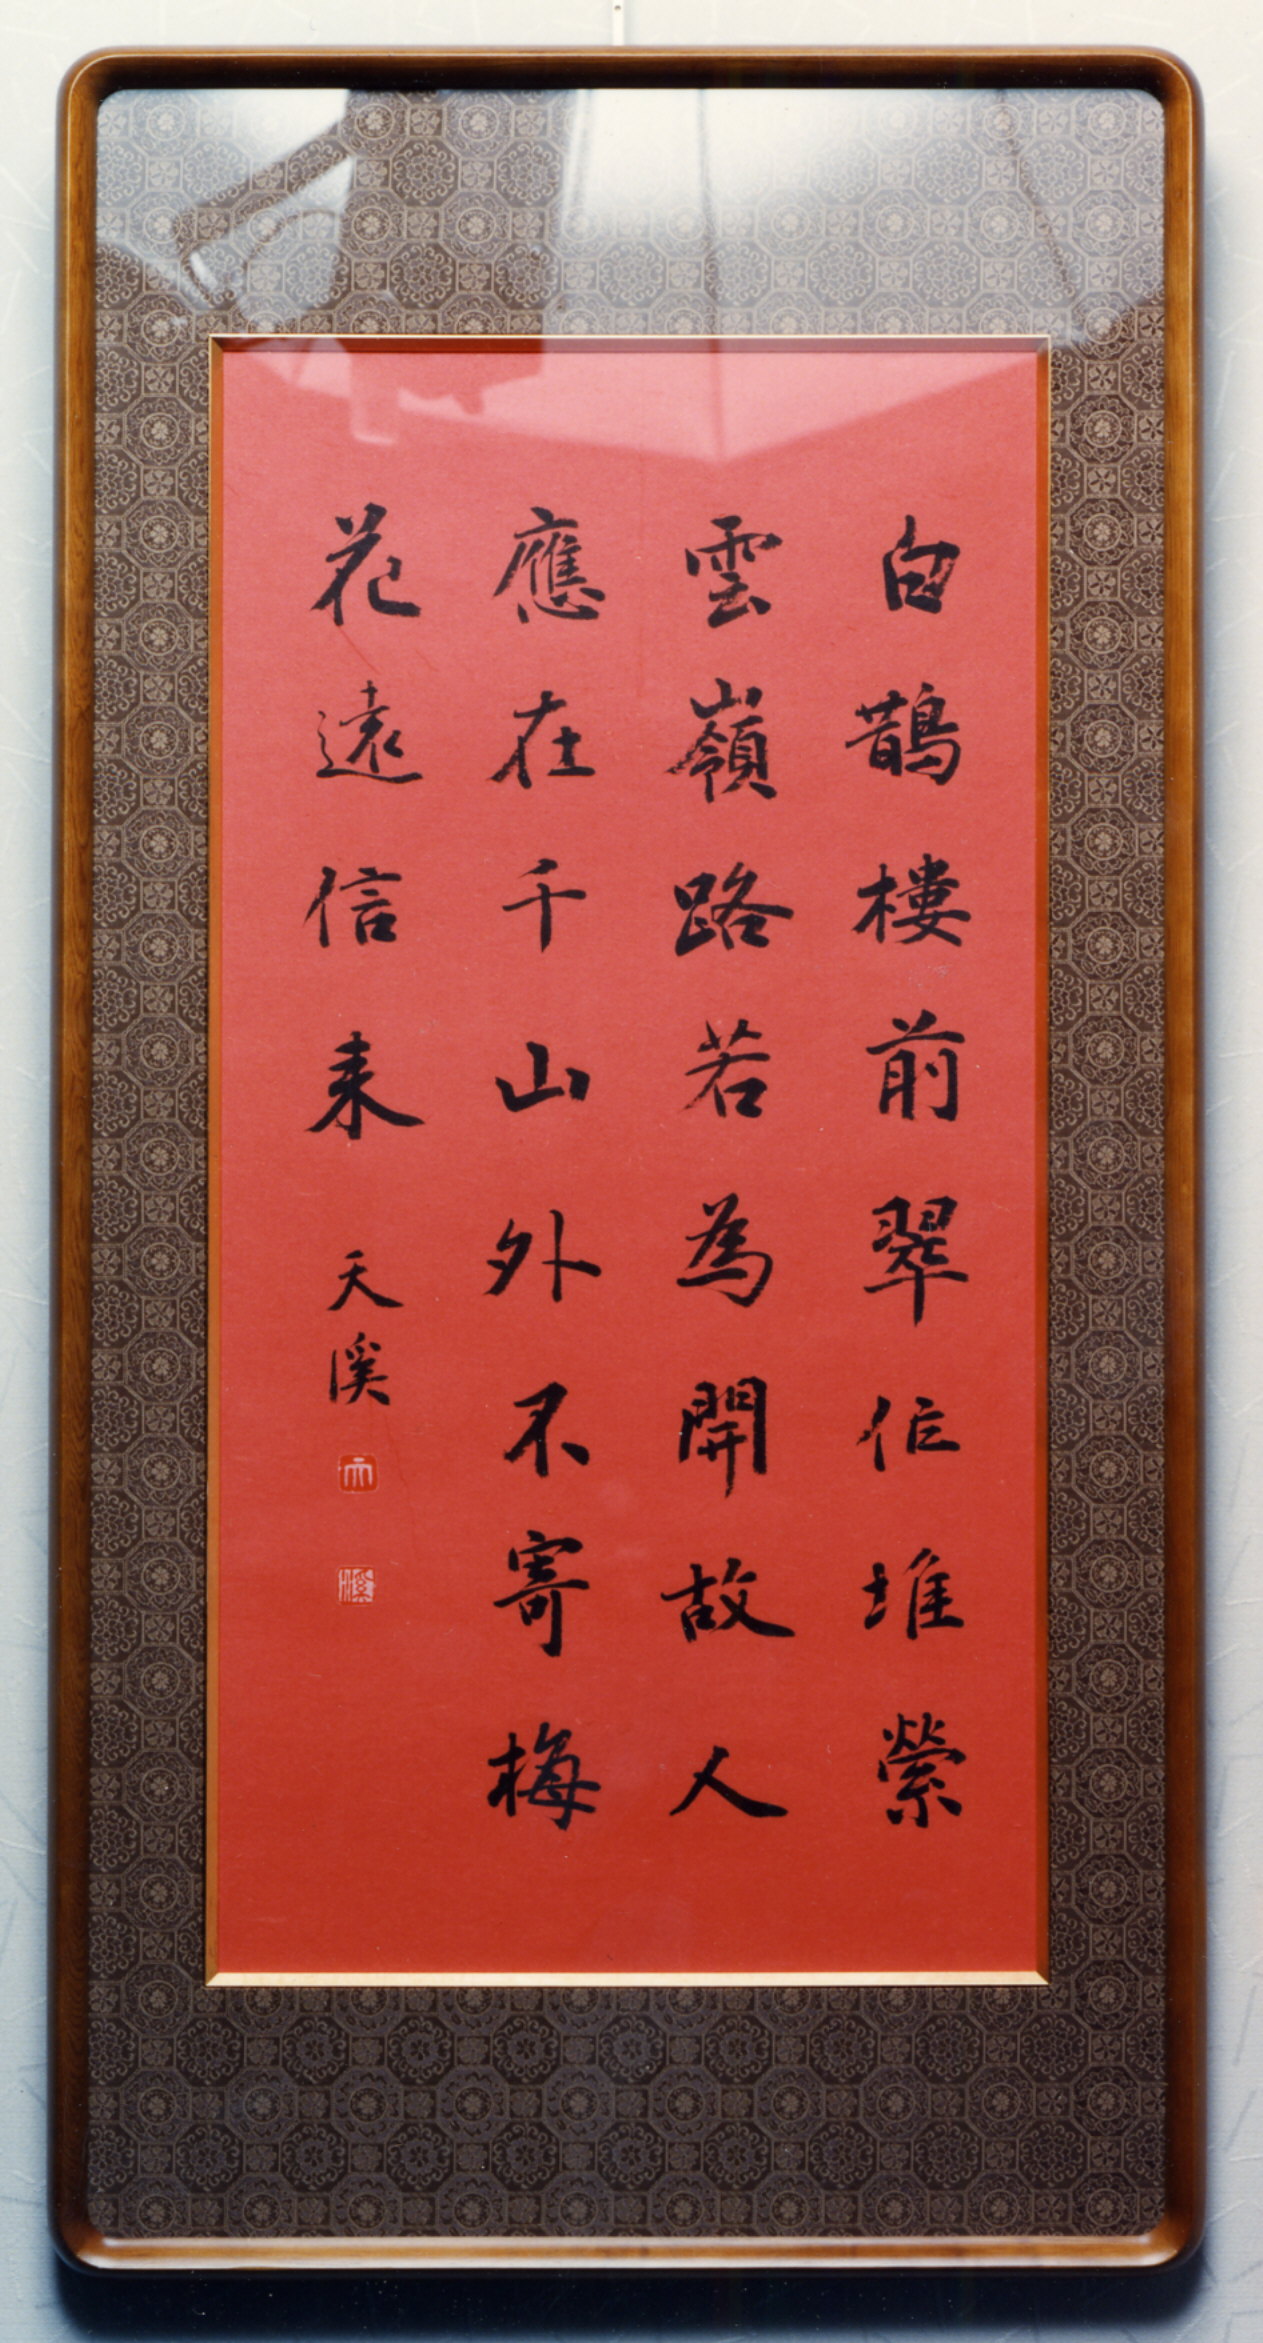 白鵲樓前翠作堆縈
雲嶺路若為開故人
應在千山外不寄梅
花遠信来
天溪